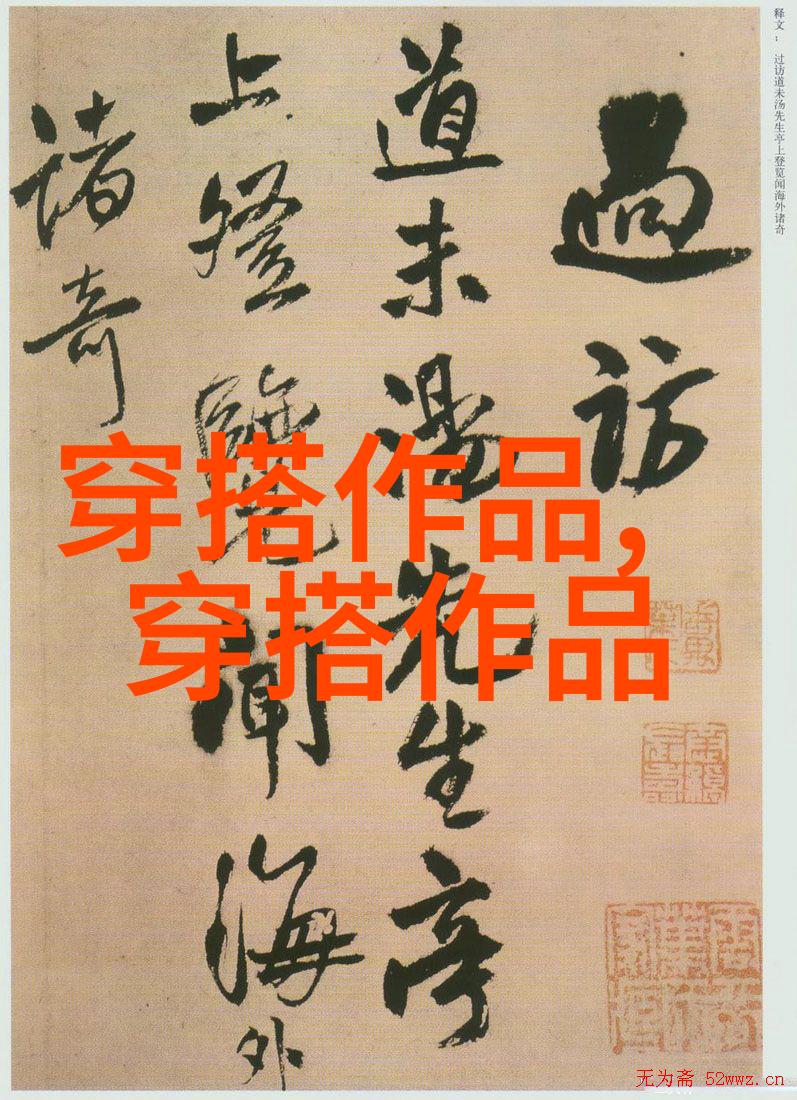 释文： 过访道未汤先生亭上登览闻海外诸奇
過訪
道未湯先生亭
上登覽聞海外
諸奇
穿搭作品,
穿搭作品
无为斋 52wwz.cn